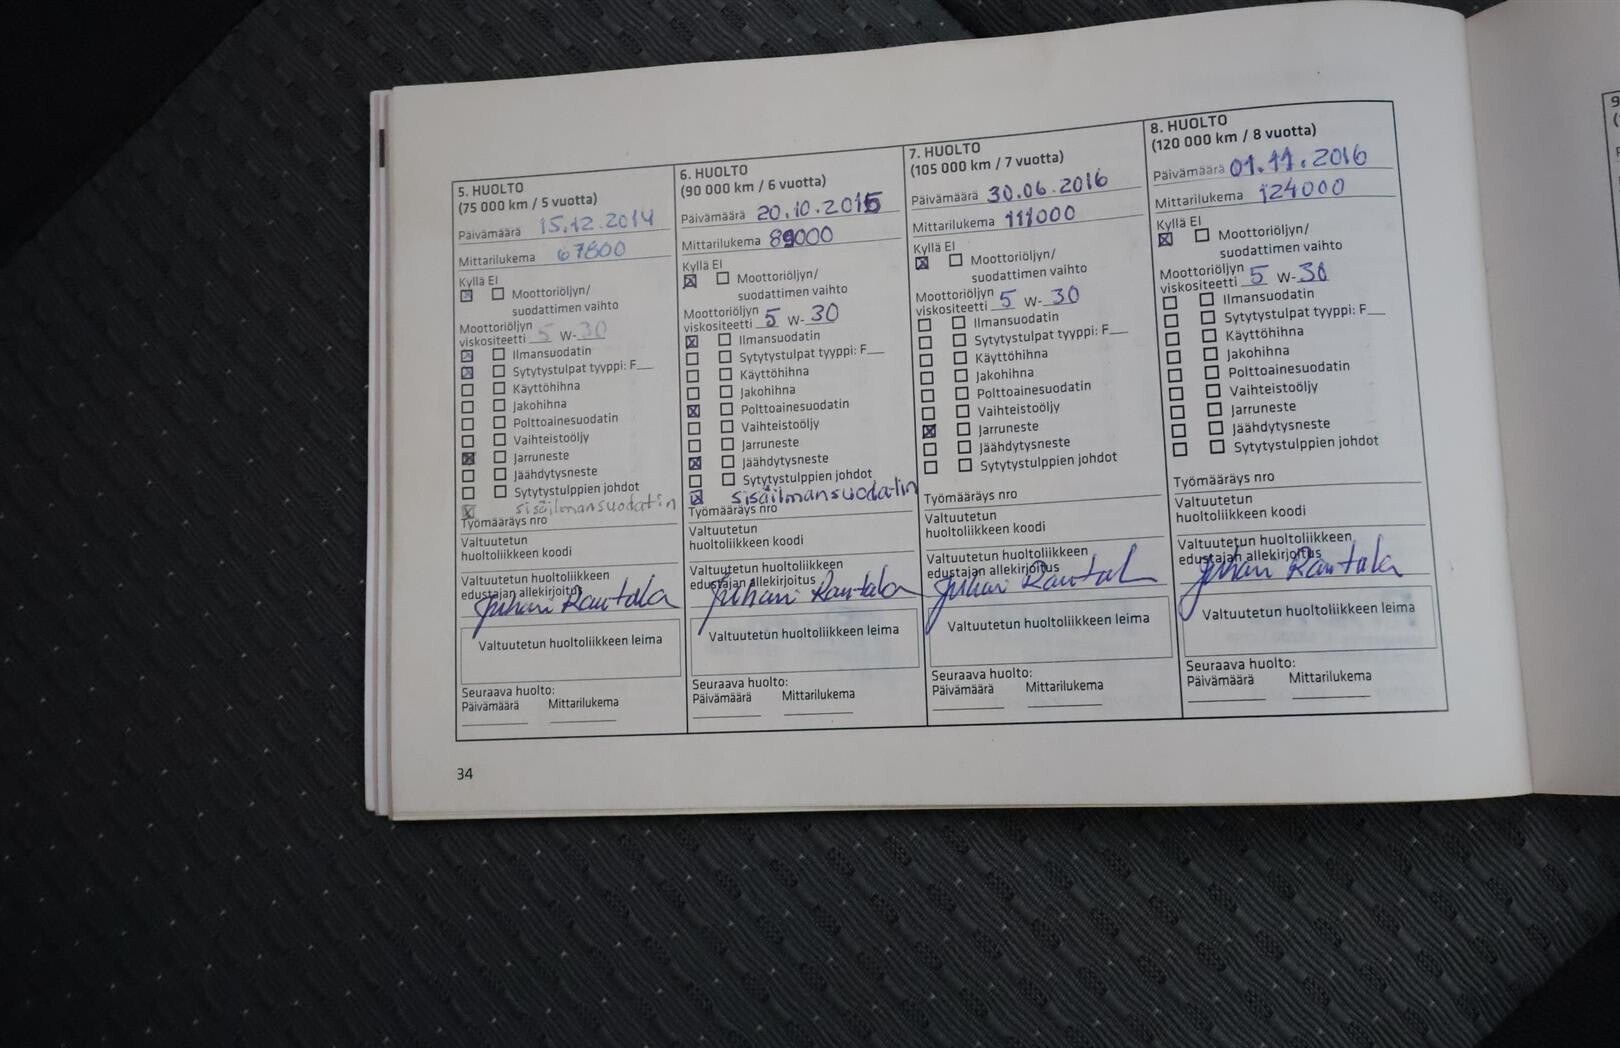 5. HUOLTO
(75 000 km / 5 vuotta)
Päivämäärä 15.12.2014
Mittarilukema 67800
Kyllä EI
Moottoriöljyn/
suodattimen vaihto
Moottoriöljyn
viskositeetti 5 W-30
Ilmansuodatin
Sytytystulpat tyyppi: F__
Käyttöhihna
Jakohihna
Polttoainesuodatin
Vaihteistoöljy
Jarruneste
Jäähdytysneste
Sytytystulppien johdot
sisäilmansuodatin
Työmääräys nro
Valtuutetun
huoltoliikkeen koodi
Valtuutetun huoltoliikkeen
edustajan allekirjoitus
Juhani Rautala
Valtuutetun huoltoliikkeen leima
Seuraava huolto:
Päivämäärä Mittarilukema
6. HUOLTO
(90 000 km / 6 vuotta)
Päivämäärä 20.10.2015
Mittarilukema 89000
Kyllä EI
Moottoriöljyn/
suodattimen vaihto
Moottoriöljyn
viskositeetti 5 W-30
Ilmansuodatin
Sytytystulpat tyyppi: F__
Käyttöhihna
Jakohihna
Polttoainesuodatin
Vaihteistoöljy
Jarruneste
Jäähdytysneste
Sytytystulppien johdot
sisäilmansuodatin
Työmääräys nro
Valtuutetun
huoltoliikkeen koodi
Valtuutetun huoltoliikkeen
edustajan allekirjoitus
Juhani Rautala
Valtuutetun huoltoliikkeen leima
Seuraava huolto:
Päivämäärä Mittarilukema
7. HUOLTO
(105 000 km / 7 vuotta)
Päivämäärä 30.06.2016
Mittarilukema 111000
Kyllä EI
Moottoriöljyn/
suodattimen vaihto
Moottoriöljyn
viskositeetti 5 W-30
Ilmansuodatin
Sytytystulpat tyyppi: F__
Käyttöhihna
Jakohihna
Polttoainesuodatin
Vaihteistoöljy
Jarruneste
Jäähdytysneste
Sytytystulppien johdot
Työmääräys nro
Valtuutetun
huoltoliikkeen koodi
Valtuutetun huoltoliikkeen
edustajan allekirjoitus
Juhani Rautal
Valtuutetun huoltoliikkeen leima
Seuraava huolto:
Päivämäärä Mittarilukema
8. HUOLTO
(120 000 km / 8 vuotta)
Päivämäärä 01.11.2016
Mittarilukema 124000
Kyllä EI
Moottoriöljyn/
suodattimen vaihto
Moottoriöljyn
viskositeetti 5 W-30
Ilmansuodatin
Sytytystulpat tyyppi: F__
Käyttöhihna
Jakohihna
Polttoainesuodatin
Vaihteistoöljy
Jarruneste
Jäähdytysneste
Sytytystulppien johdot
Työmääräys nro
Valtuutetun
huoltoliikkeen koodi
Valtuutetun huoltoliikkeen
edustajan allekirjoitus
Juhani Rautala
Valtuutetun huoltoliikkeen leima
Seuraava huolto:
Päivämäärä Mittarilukema
34